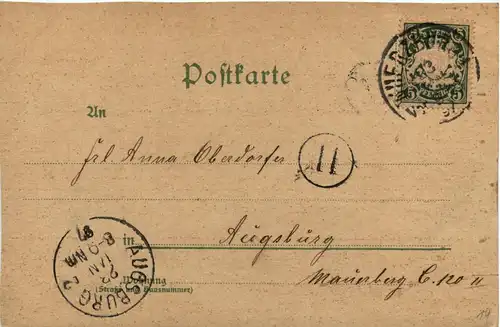 Postkarte
An
Frl. Anna Oberdorfer
11
in Augsburg
Wohnung
(Straße und Hausnummer)
Mauerberg C. no
AUGSBURG 2
22 JAN
8-9 NM
97
5 5